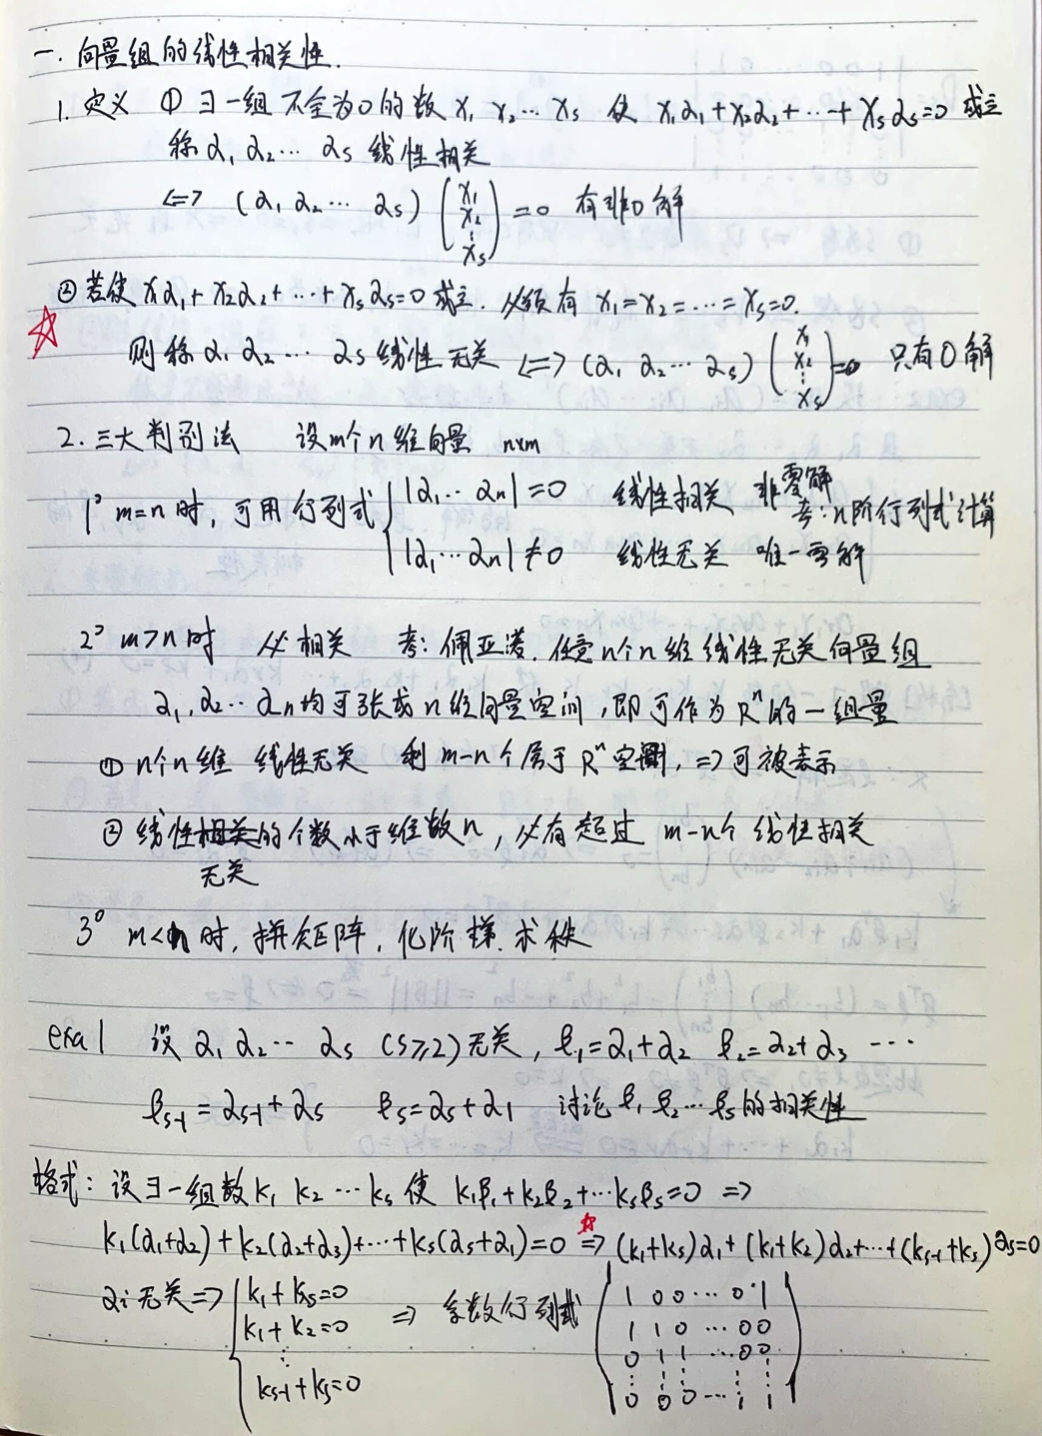 一. 向量组的线性相关性.
1. 定义 ① ∃一组不全为0的数 x₁ x₂… xₛ 使 x₁α₁+x₂α₂+…+xₛαₛ=0 成立
称 α₁ α₂… αₛ 线性相关
⇐⇒ (α₁ α₂… αₛ) (x₁ x₂ ⋮ xₛ) =0 有非0解
② 若使 x₁α₁+x₂α₂+…+xₛαₛ=0 成立. 必须有 x₁=x₂=…=xₛ=0.
则称 α₁ α₂… αₛ 线性无关 ⇐⇒ (α₁ α₂… αₛ) (x₁ x₂ ⋮ xₛ)=0 只有0解
2. 三大判别法 设m个n维向量 n×m
1° m=n时, 可用行列式 { |α₁…αₙ|=0 线性相关 非零解
考: n阶行列式计算
|α₁…αₙ|≠0 线性无关 唯一零解
2° m>n时 必相关 考: 佩亚诺. 任意n个n维线性无关向量组
α₁, α₂… αₙ均可张成n维向量空间, 即可作为Rⁿ的一组量
① n个n维 线性无关 剩 m-n个属于Rⁿ空间, ⇒可被表示
② 线性相关的个数小于维数n, 必有超过 m-n个 线性相关
无关
3° m<n时, 拼矩阵, 化阶梯. 求秩
exa1 设 α₁ α₂… αₛ (s≥2)无关, β₁=α₁+α₂ β₂=α₂+α₃ …
βₛ₋₁=αₛ₋₁+αₛ βₛ=αₛ+α₁ 讨论β₁ β₂…βₛ的相关性
格式: 设∃一组数k₁ k₂…kₛ 使 k₁β₁+k₂β₂+…kₛβₛ=0 ⇒
k₁(α₁+α₂)+k₂(α₂+α₃)+…+kₛ(αₛ+α₁)=0 ⇒ (k₁+kₛ)α₁+(k₁+k₂)α₂+…+(kₛ₋₁+kₛ)αₛ=0
αᵢ无关⇒ { k₁+kₛ=0 ⇒ 系数行列式 | 1 0 0 … 0 1 |
k₁+k₂=0 | 1 1 0 … 0 0 |
⋮ | 0 1 1 … 0 0 |
kₛ₋₁+kₛ=0 | 0 0 0 … 1 1 |